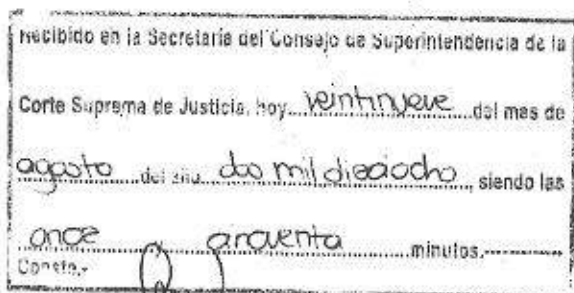 Recibido en la Secretaria del Consejo de Superintendencia de la
Corte Suprema de Justicia, hoy veintinueve del mes de
agosto del año dos mil dieciocho, siendo las
once y cincuenta minutos.
Conste.-